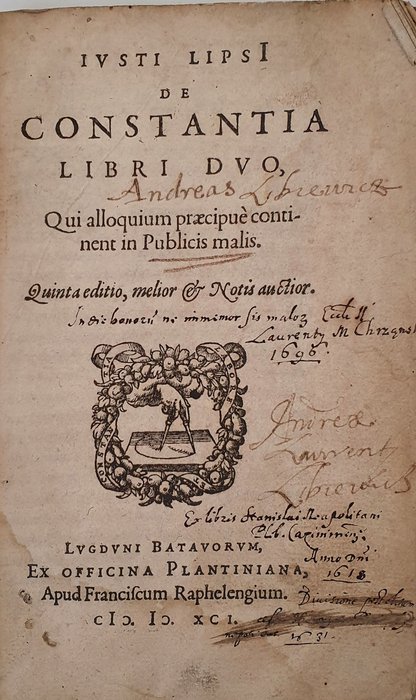 IVSTI LIPSI
DE
CONSTANTIA
LIBRI DVO,
Andreas Libiewicz
Qui alloquium præcipuè conti-
nent in Publicis malis.
Quinta editio, melior & Notis auctior.
In die bonorū ne immemor sis maloꝝ Eccli II
Laurenty M Chrząnst
1696.
CONSTANTIA LABORE
Andreæ
Laurent
Ex libris Stanislai Neapolitani
Plb.
Anno Dni
1618
LVGDVNI BATAVORVM,
EX OFFICINA PLANTINIANA,
Apud Franciscum Raphelengium.
CIↃ. IↃ. XCI.
1631.